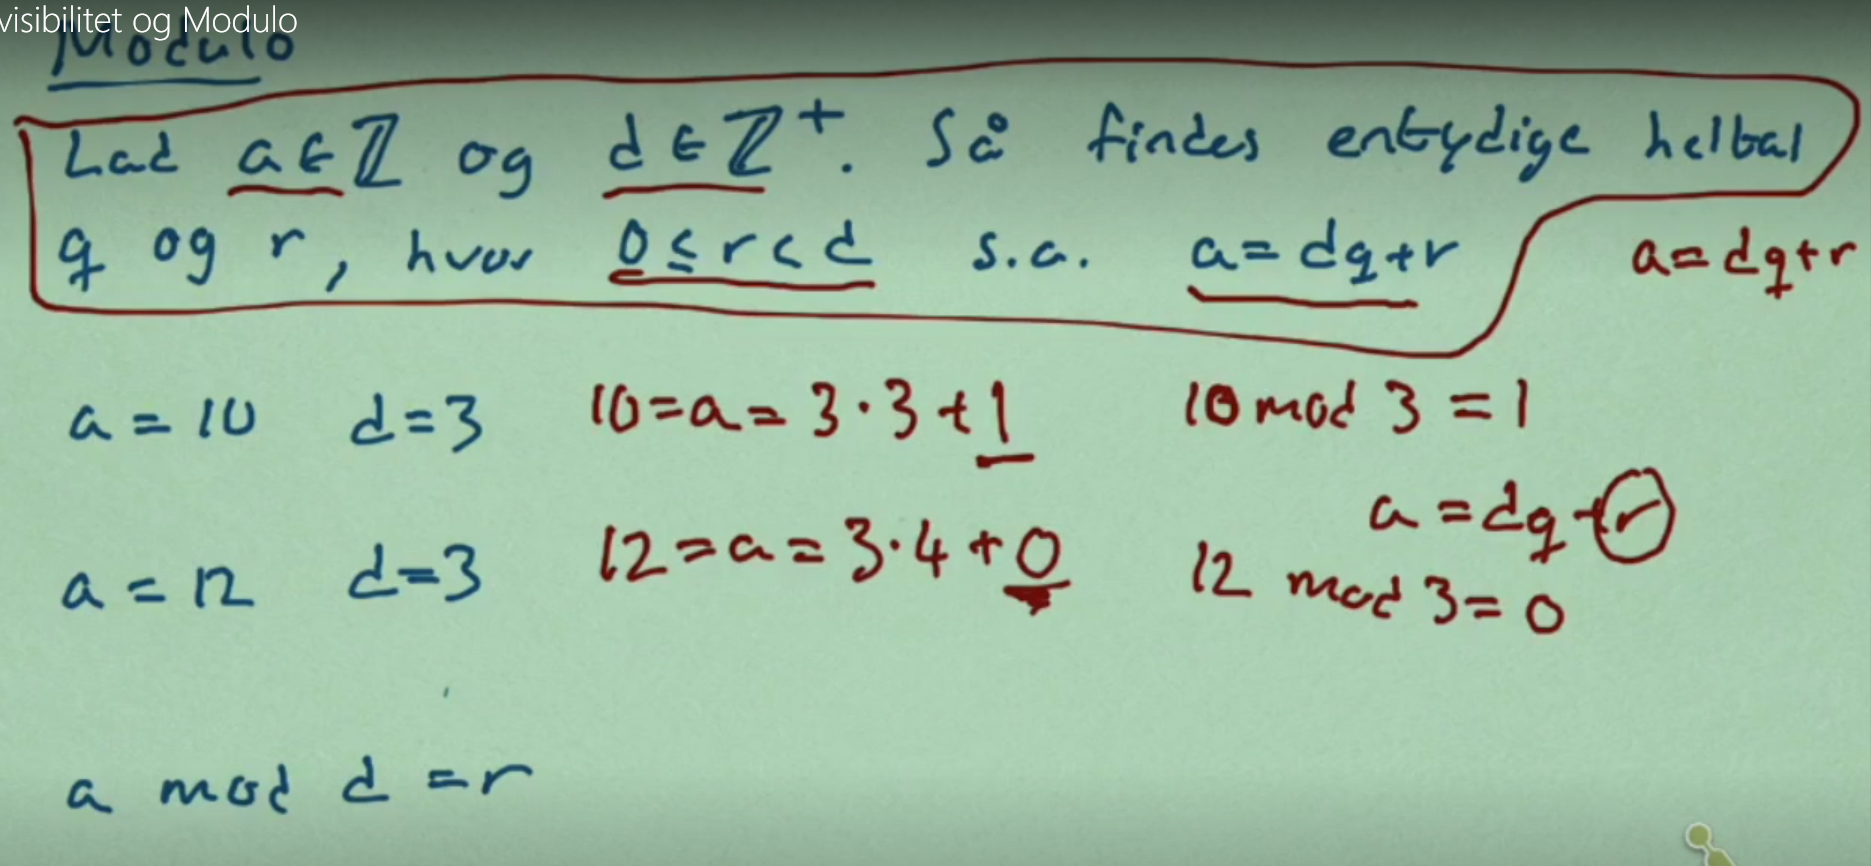 visibilitet og Modulo
Modulo
Lad a∈ℤ og d∈ℤ⁺. Så findes entydige heltal
q og r, hvor 0≤r<d s.a. a=dq+r a=dq+r
a=10 d=3 10=a=3·3+1 10 mod 3=1
a=dq+r
a=12 d=3 12=a=3·4+0 12 mod 3=0
a mod d=r